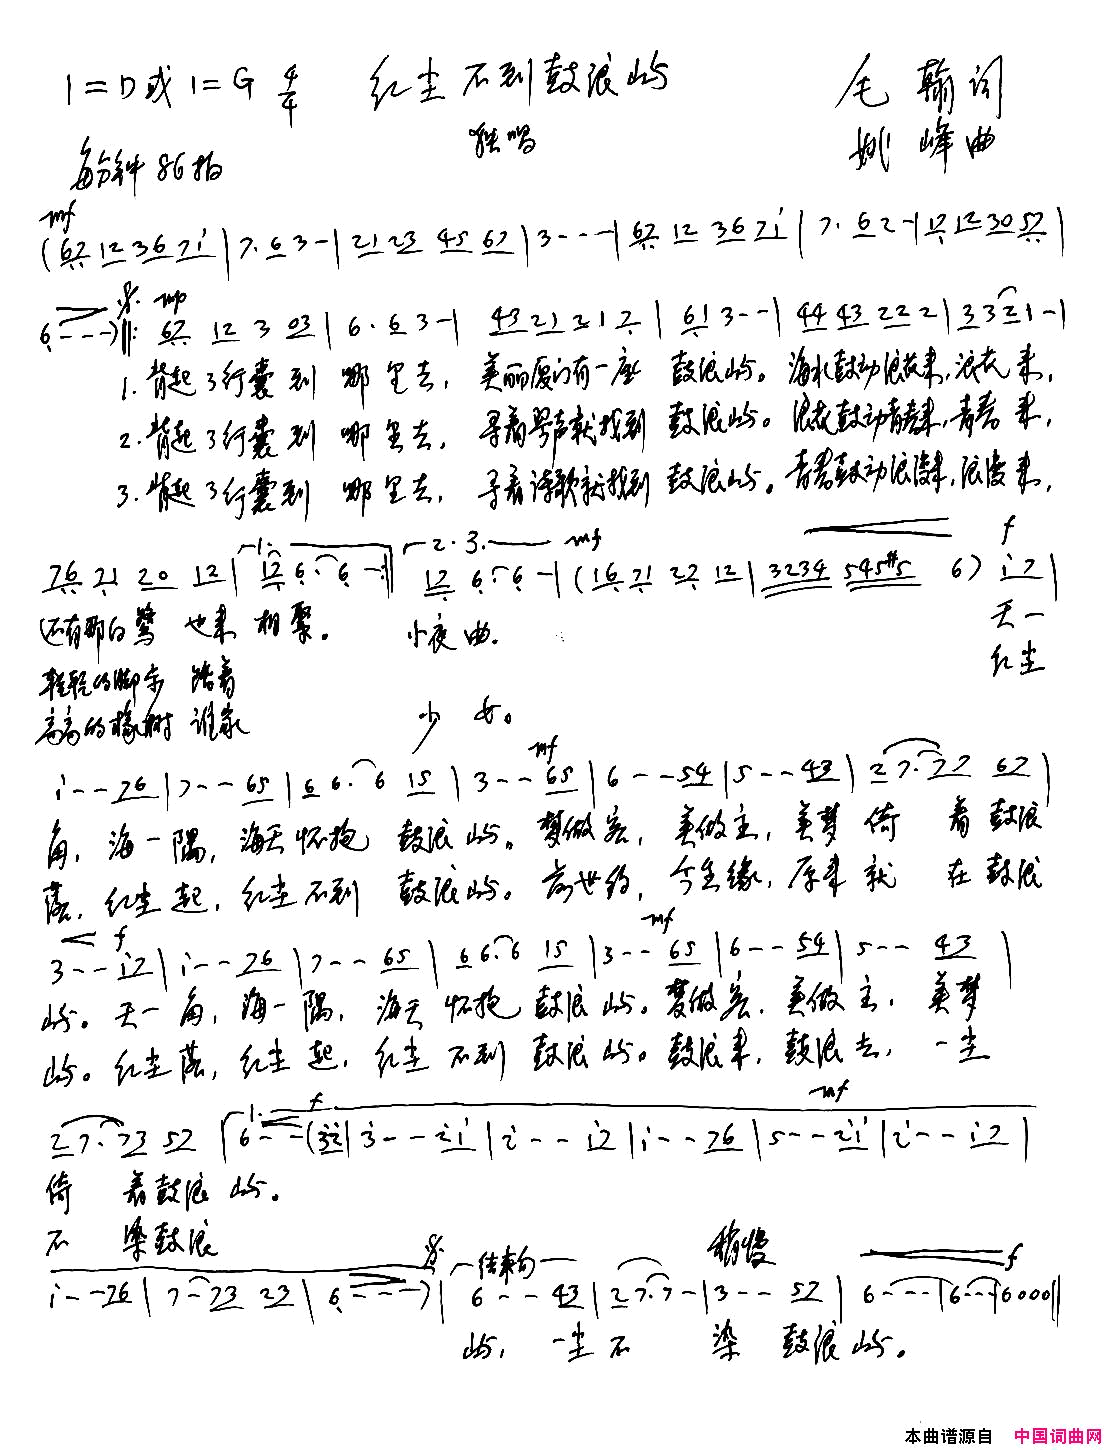 1=D或1=G 4/4 红尘不到鼓浪屿 毛翰词
独唱 姚峰曲
每分钟86拍
mf
(67 12 36 71 | 7. 6 3 - | 21 23 45 67 | 3 - - - | 67 12 36 71 | 7. 6 2 - | 17 12 30 57 |
mp
6 - - -) ‖: 67 12 3 03 | 6. 6 3 - | 43 21 21 7 | 61 3 - - | 44 43 22 2 | 33 21 1 - |
1. 背起了行囊到哪里去，美丽厦门有一座鼓浪屿。海水鼓动浪花来，浪花来，
2. 背起了行囊到哪里去，寻着琴声就找到鼓浪屿。浪花鼓动青春来，青春来，
3. 背起了行囊到哪里去，寻着诗歌就找到鼓浪屿。青春鼓动浪漫来，浪漫来，
1. 2.3. mf f
76 71 20 12 | 17 6. 6 - :‖ 17 6. 6 - | (16 71 27 12 | 3234 545#5 6) i7 |
还有那白鹭也来相聚。 小夜曲. 天一
轻轻的脚步踏着 红尘
高高的橡树谁家 少女。
mf
i - - 76 | 7 - - 65 | 6 6. 6 15 | 3 - - 65 | 6 - - 54 | 5 - - 43 | 27. 77 67 |
角，海一隅，海天怀抱鼓浪屿。梦做客，美做主，美梦倚着鼓浪
落，红尘起，红尘不到鼓浪屿。前世约，今生缘，原来就在鼓浪
f mf
3 - - i7 | i - - 76 | 7 - - 65 | 6 6. 6 15 | 3 - - 65 | 6 - - 54 | 5 - - 43 |
屿。天一角，海一隅，海天怀抱鼓浪屿。梦做客，美做主，美梦
屿。红尘落，红尘起，红尘不到鼓浪屿。鼓浪来，鼓浪去，一尘
1. f mf
27. 73 57 | 6 - - (32 | 3 - - 21 | 2 - - i7 | i - - 76 | 5 - - 21 | 2 - - i7 |
倚着鼓浪屿。
不染鼓浪
结束句 稍慢 f
i - - 76 | 7 - 73 23 | 6 - - -) | 6 - - 43 | 27. 7 - | 3 - - 57 | 6 - - - | 6 - - - | 6000 ‖
屿，一尘不染鼓浪屿。
本曲谱源自 中国词曲网